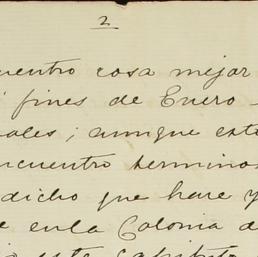 2
uentro cosa mejor
fines de Enero
ales; aunque est
ncuentro termino
dicho que hace y
e en la Colonia d
este capítulo